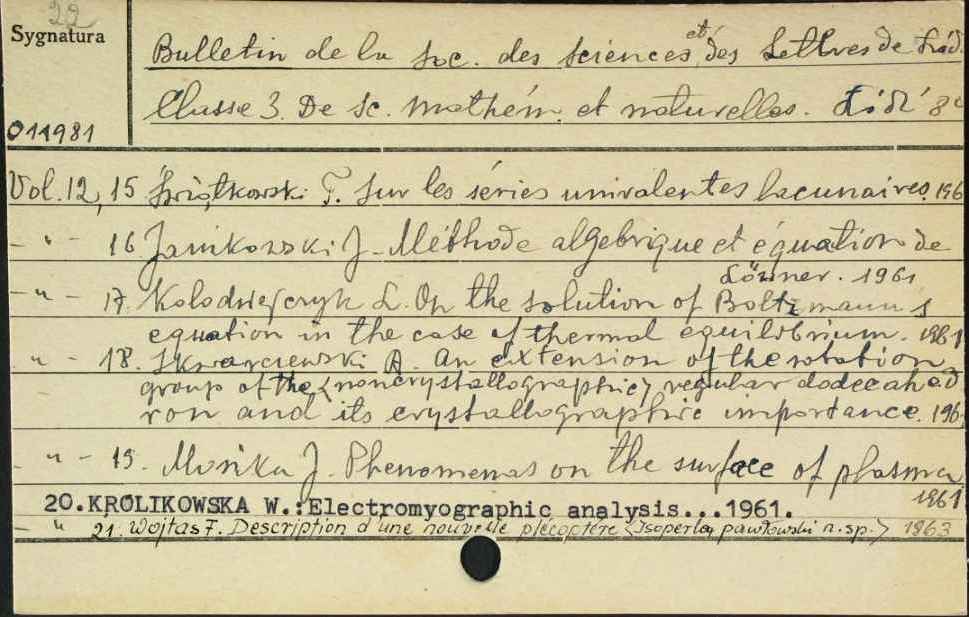 22
Sygnatura
Bulletin de la Soc. des Sciences et des Lettres de Łód
Classe 3. De Sc. mathém. et naturelles. Łódź 8°
011981
Vol. 12, 15 Świątkowski T. Sur les séries univalentes lacunaires. 196
- " - 16 Janikowski J. Méthode algebrique et équation de
Löwner. 1961
- " - 17. Kolodziejczyk L. On the solution of Boltzmann's
equation in the case of thermal equilibrium. 1961
" - 18. Skwarczewski A. An extension of the rotation
group of the <noncrystallographic> regular dodecahed
ron and its crystallographic importance. 196
- " - 19. Mosika J. Phenomenas on the surface of plasma
1961
20.KROLIKOWSKA W.:Electromyographic analysis...1961.
- " 21. Wojtas F. Description d'une nouvelle plécoptère <Isoperla pawłowski n.sp.> 1963